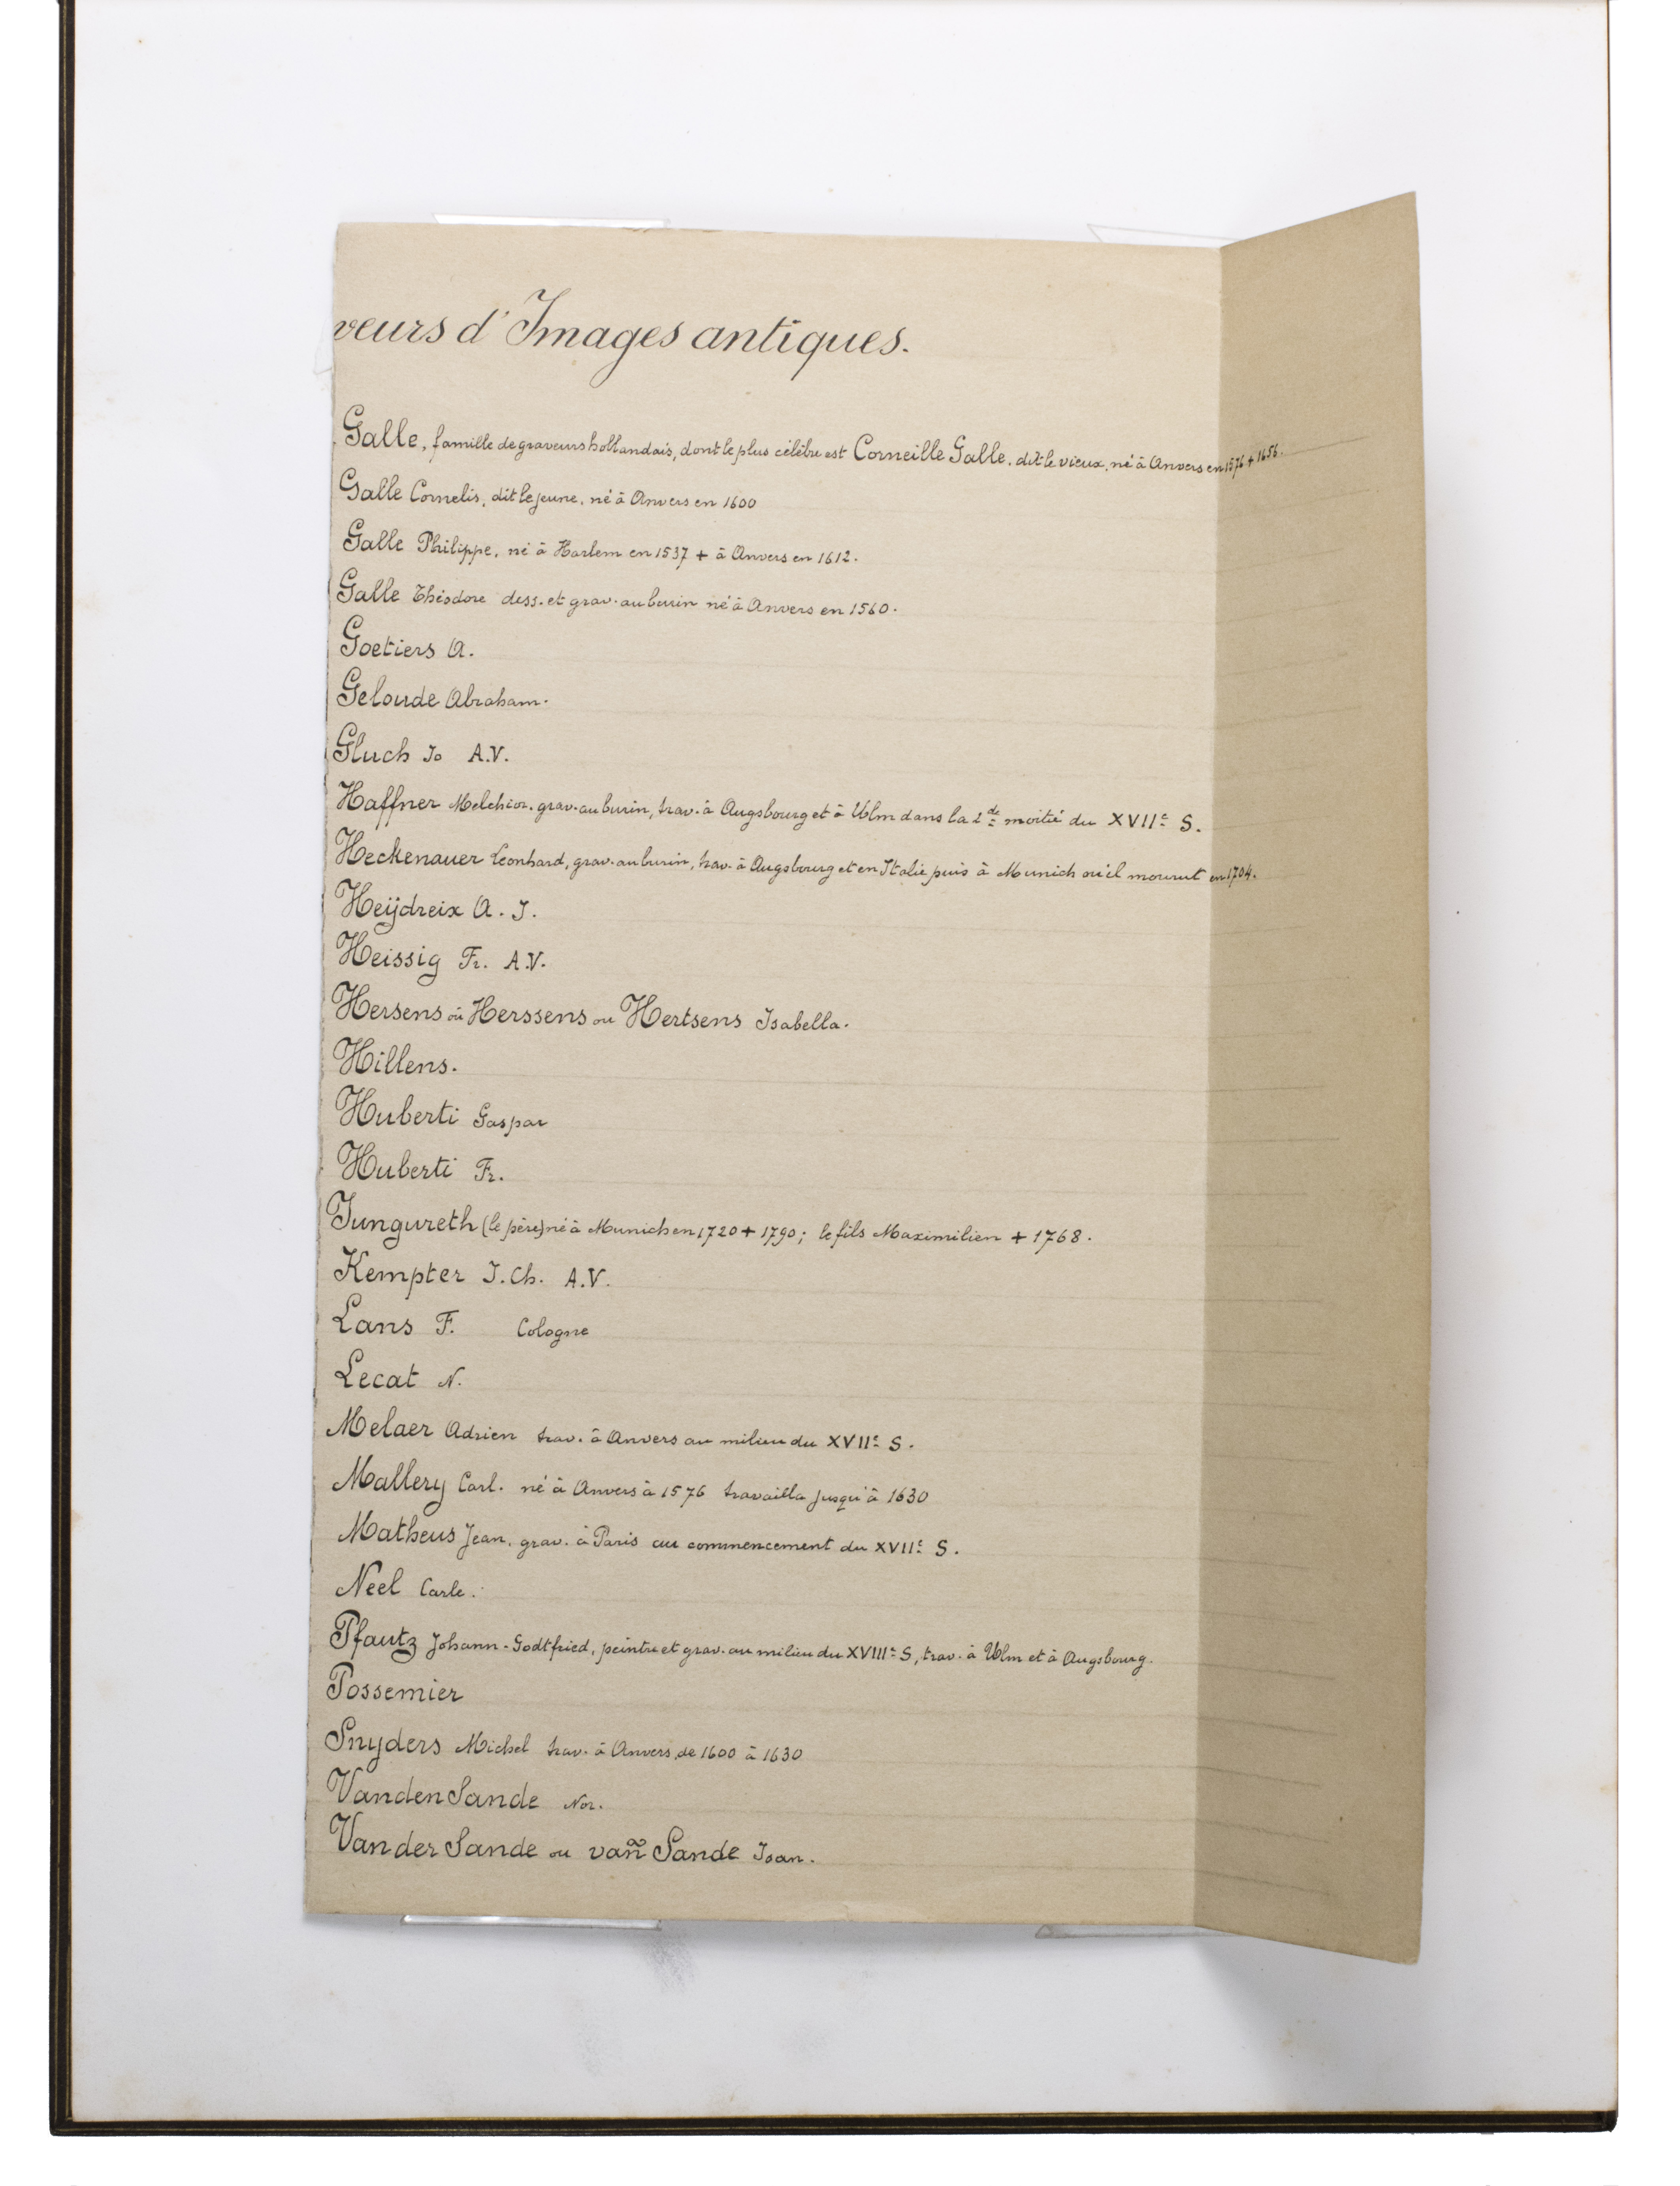 veurs d'Images antiques.
Galle, famille de graveurs hollandais, dont le plus célèbre est Corneille Galle, dit le vieux, né à Anvers en 1576 + 1656.
Galle Cornelis, dit le jeune, né à Anvers en 1600
Galle Philippe, né à Harlem en 1537 + à Anvers en 1612.
Galle Théodore dess. et grav. au burin né à Anvers en 1560.
Goetiers A.
Geloude Abraham.
Gluch Jo A.V.
Haffner Melchior, grav. au burin, trav. à Augsbourg et à Ulm dans la 2de moitié du XVIIe S.
Heckenauer Leonhard, grav. au burin, trav. à Augsbourg et en Italie puis à Munich où il mourut en 1704.
Heijdreix A. J.
Heissig Fr. A.V.
Hersens ou Herssens ou Hertsens Isabella.
Hillens.
Huberti Gaspar
Huberti Fr.
Jungureth (le père) né à Munich en 1720 + 1790; le fils Maximilien + 1768.
Kempter J. Ch. A.V.
Lans F. Cologne
Lecat N.
Melaer Adrien trav. à Anvers au milieu du XVIIe S.
Mallery Carl. né à Anvers à 1576 travailla jusqu'à 1630
Matheus Jean, grav. à Paris au commencement du XVIIe S.
Neel Carle.
Pfautz Johann-Godtfried, peintre et grav. au milieu du XVIIIe S, trav. à Ulm et à Augsbourg.
Possemier
Snyders Michel trav. à Anvers de 1600 à 1630
Vanden Sande Nor.
Van der Sande ou vañ Sande Joan.